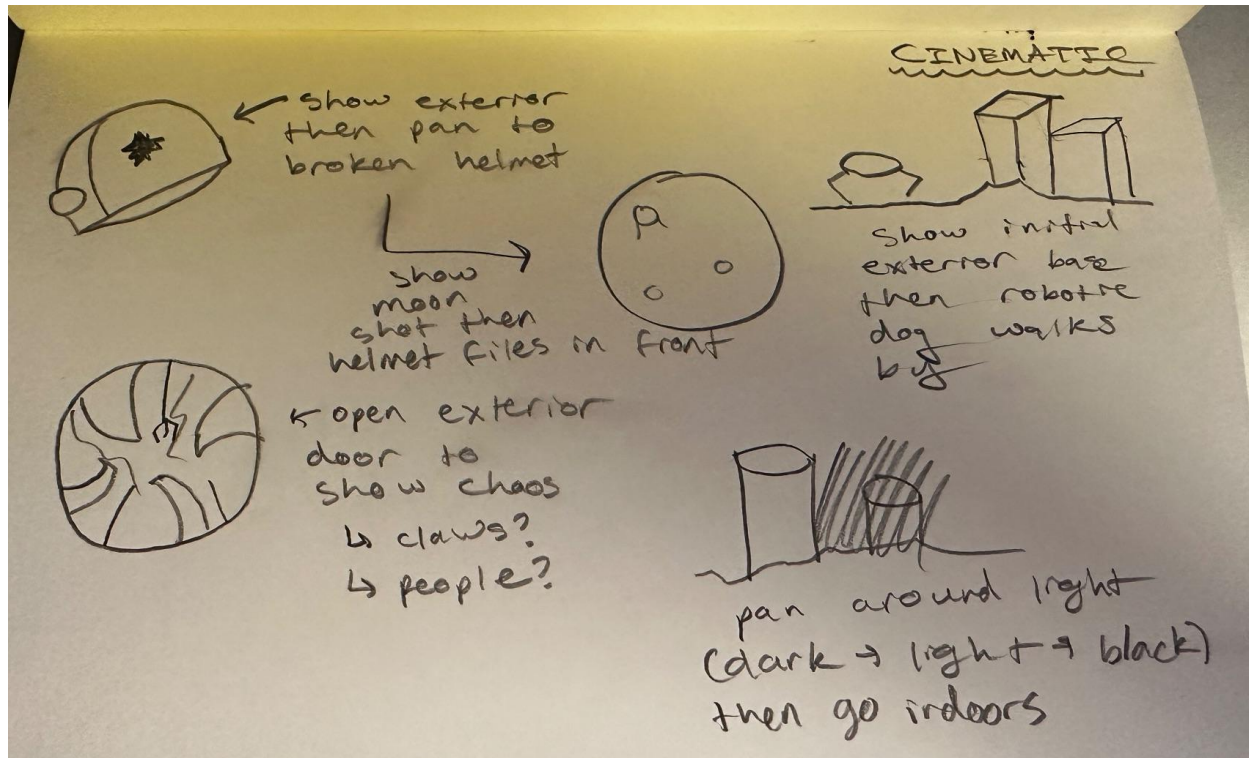 CINEMATIC
show exterior
then pan to
broken helmet
show
moon
shot then
helmet flies in front
show initial
exterior base
then robotic
dog walks
by
open exterior
door to
show chaos
↳ claws?
↳ people?
pan around light
(dark → light → black)
then go indoors